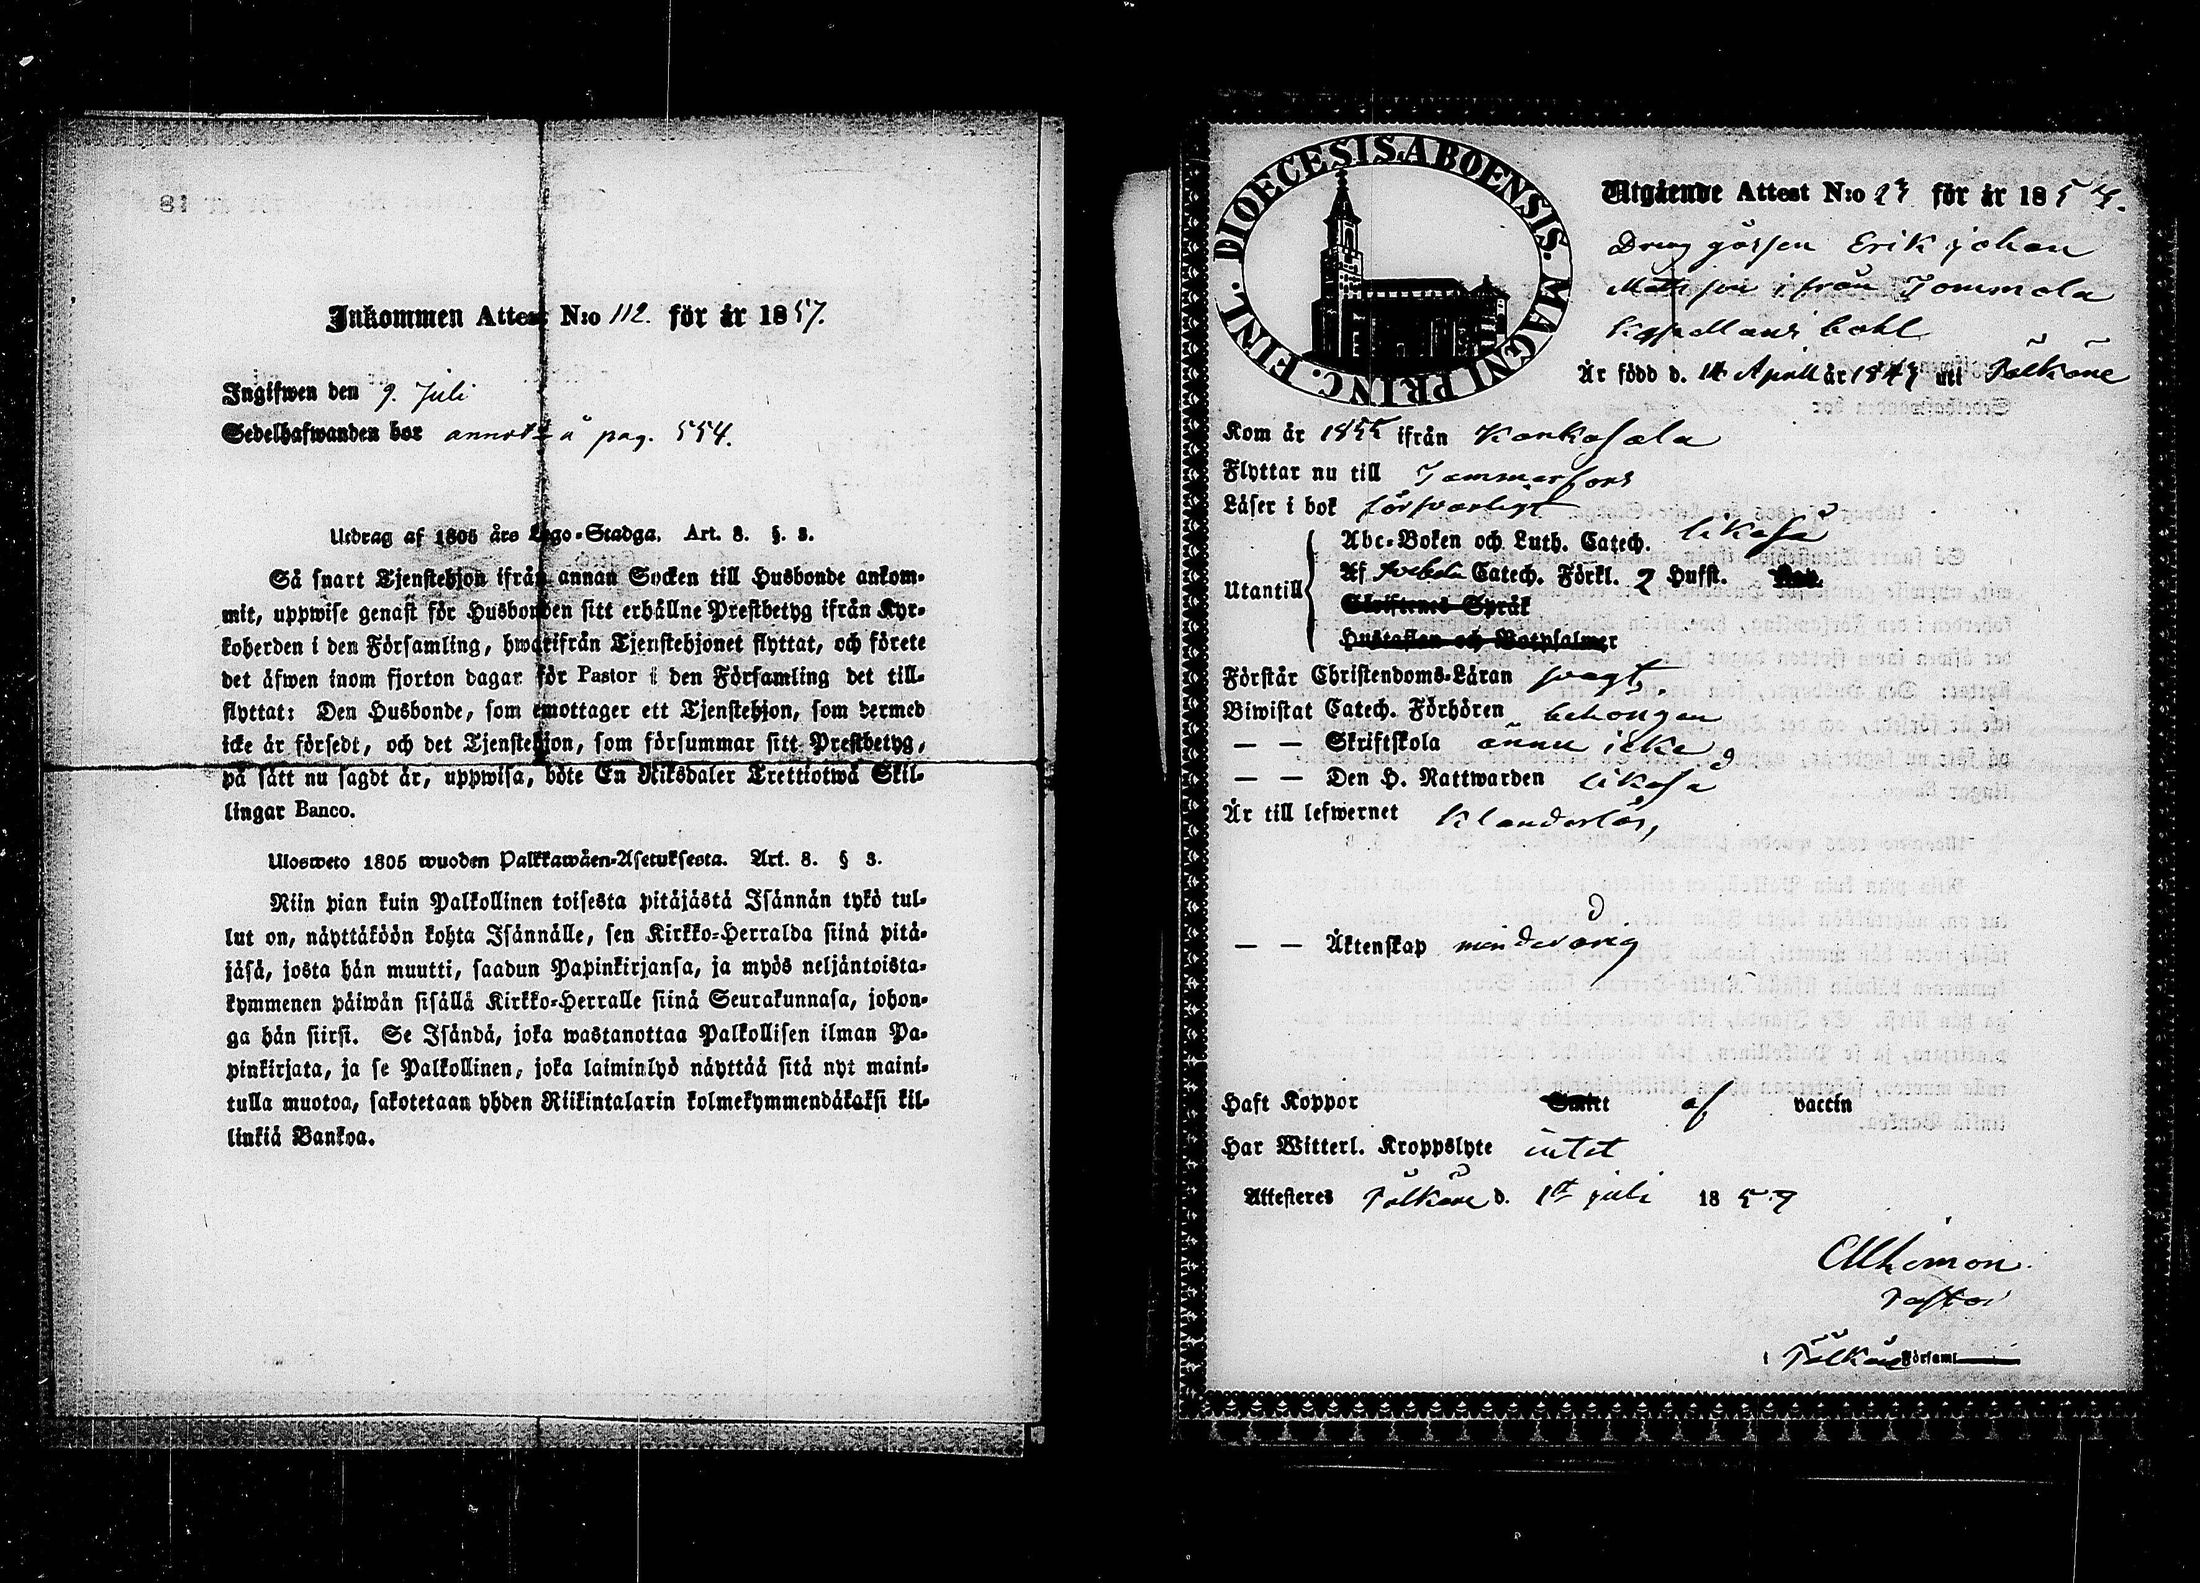 Inkommen Attest N:o 112. för år 1857.
Ingifwen den 9. Juli
Sedelhafwanden bor annot. å pag. 554.
Utdrag af 1805 års Lego-Stadga. Art. 8. §. 3.
Så snart Tjenstehjon ifrån annan Socken till Husbonde ankom-
mit, uppwise genast för Husbonden sitt erhållne Prestbetyg ifrån Kyr-
koherden i den Församling, hwarifrån Tjenstehjonet flyttat, och förete
det äfwen inom fjorton dagar för Pastor i den Församling det till-
flyttat: Den Husbonde, som emottager ett Tjenstehjon, som dermed
icke är försedt, och det Tjenstehjon, som försummar sitt Prestbetyg,
på sätt nu sagdt är, uppwisa, böte En Riksdaler Trettiotwå Skil-
lingar Banco.
Ulosweto 1805 wuoden Palkkawäen-Asetuksesta. Art. 8. § 3.
Niin pian kuin Palkollinen toisesta pitäjästä Isännän tykö tul-
lut on, näyttäköön kohta Isännälle, sen Kirkko-Herralda siinä pitä-
jäsä, josta hän muutti, saadun Papinkirjansa, ja myös neljäntoista-
kymmenen päiwän sisällä Kirkko-Herralle siinä Seurakunnasa, johon-
ga hän siirsi. Se Isändä, joka wastanottaa Palkollisen ilman Pa-
pinkirjata, ja se Palkollinen, joka laiminlyö näyttää sitä nyt maini-
tulla muotoa, sakotetaan yhden Riikintalarin kolmekymmendäkaksi kil-
linkiä Bankoa.
DIOECESIS ABOENSIS. MAGNI PRINC. FINL.
Utgående Attest N:o 23 för år 185
Dreng gossen Erik Johan
Matsson ifrån Tommola
Kapellans bohl
Är född d. 14 April år 1843 uti Pälkäne
Kom år 1855 ifrån Kankasala
Flyttar nu till Tammerfors
Läser i bok försvarligt
Utantill
Abc-Boken och Luth. Catech. likaså
Af Svebelii Catech. Förkl. 2 Hufst.
Skriftenes Språk
Hustaflan och Botpsalmer
Förstår Christendoms-Läran svagt,
Biwistat Catech. Förhören behörigen
— — Skriftskola ännu icke
— — Den H. Nattwarden likaså
Är till lefwernet klanderlös,
— — Äktenskap minderårig
Haft Koppor af vaccin
Har Witterl. Kroppslyte intet
Attesteres Pälkäne d. 1st juli 1857
Pastor
i Pälkäne Församl